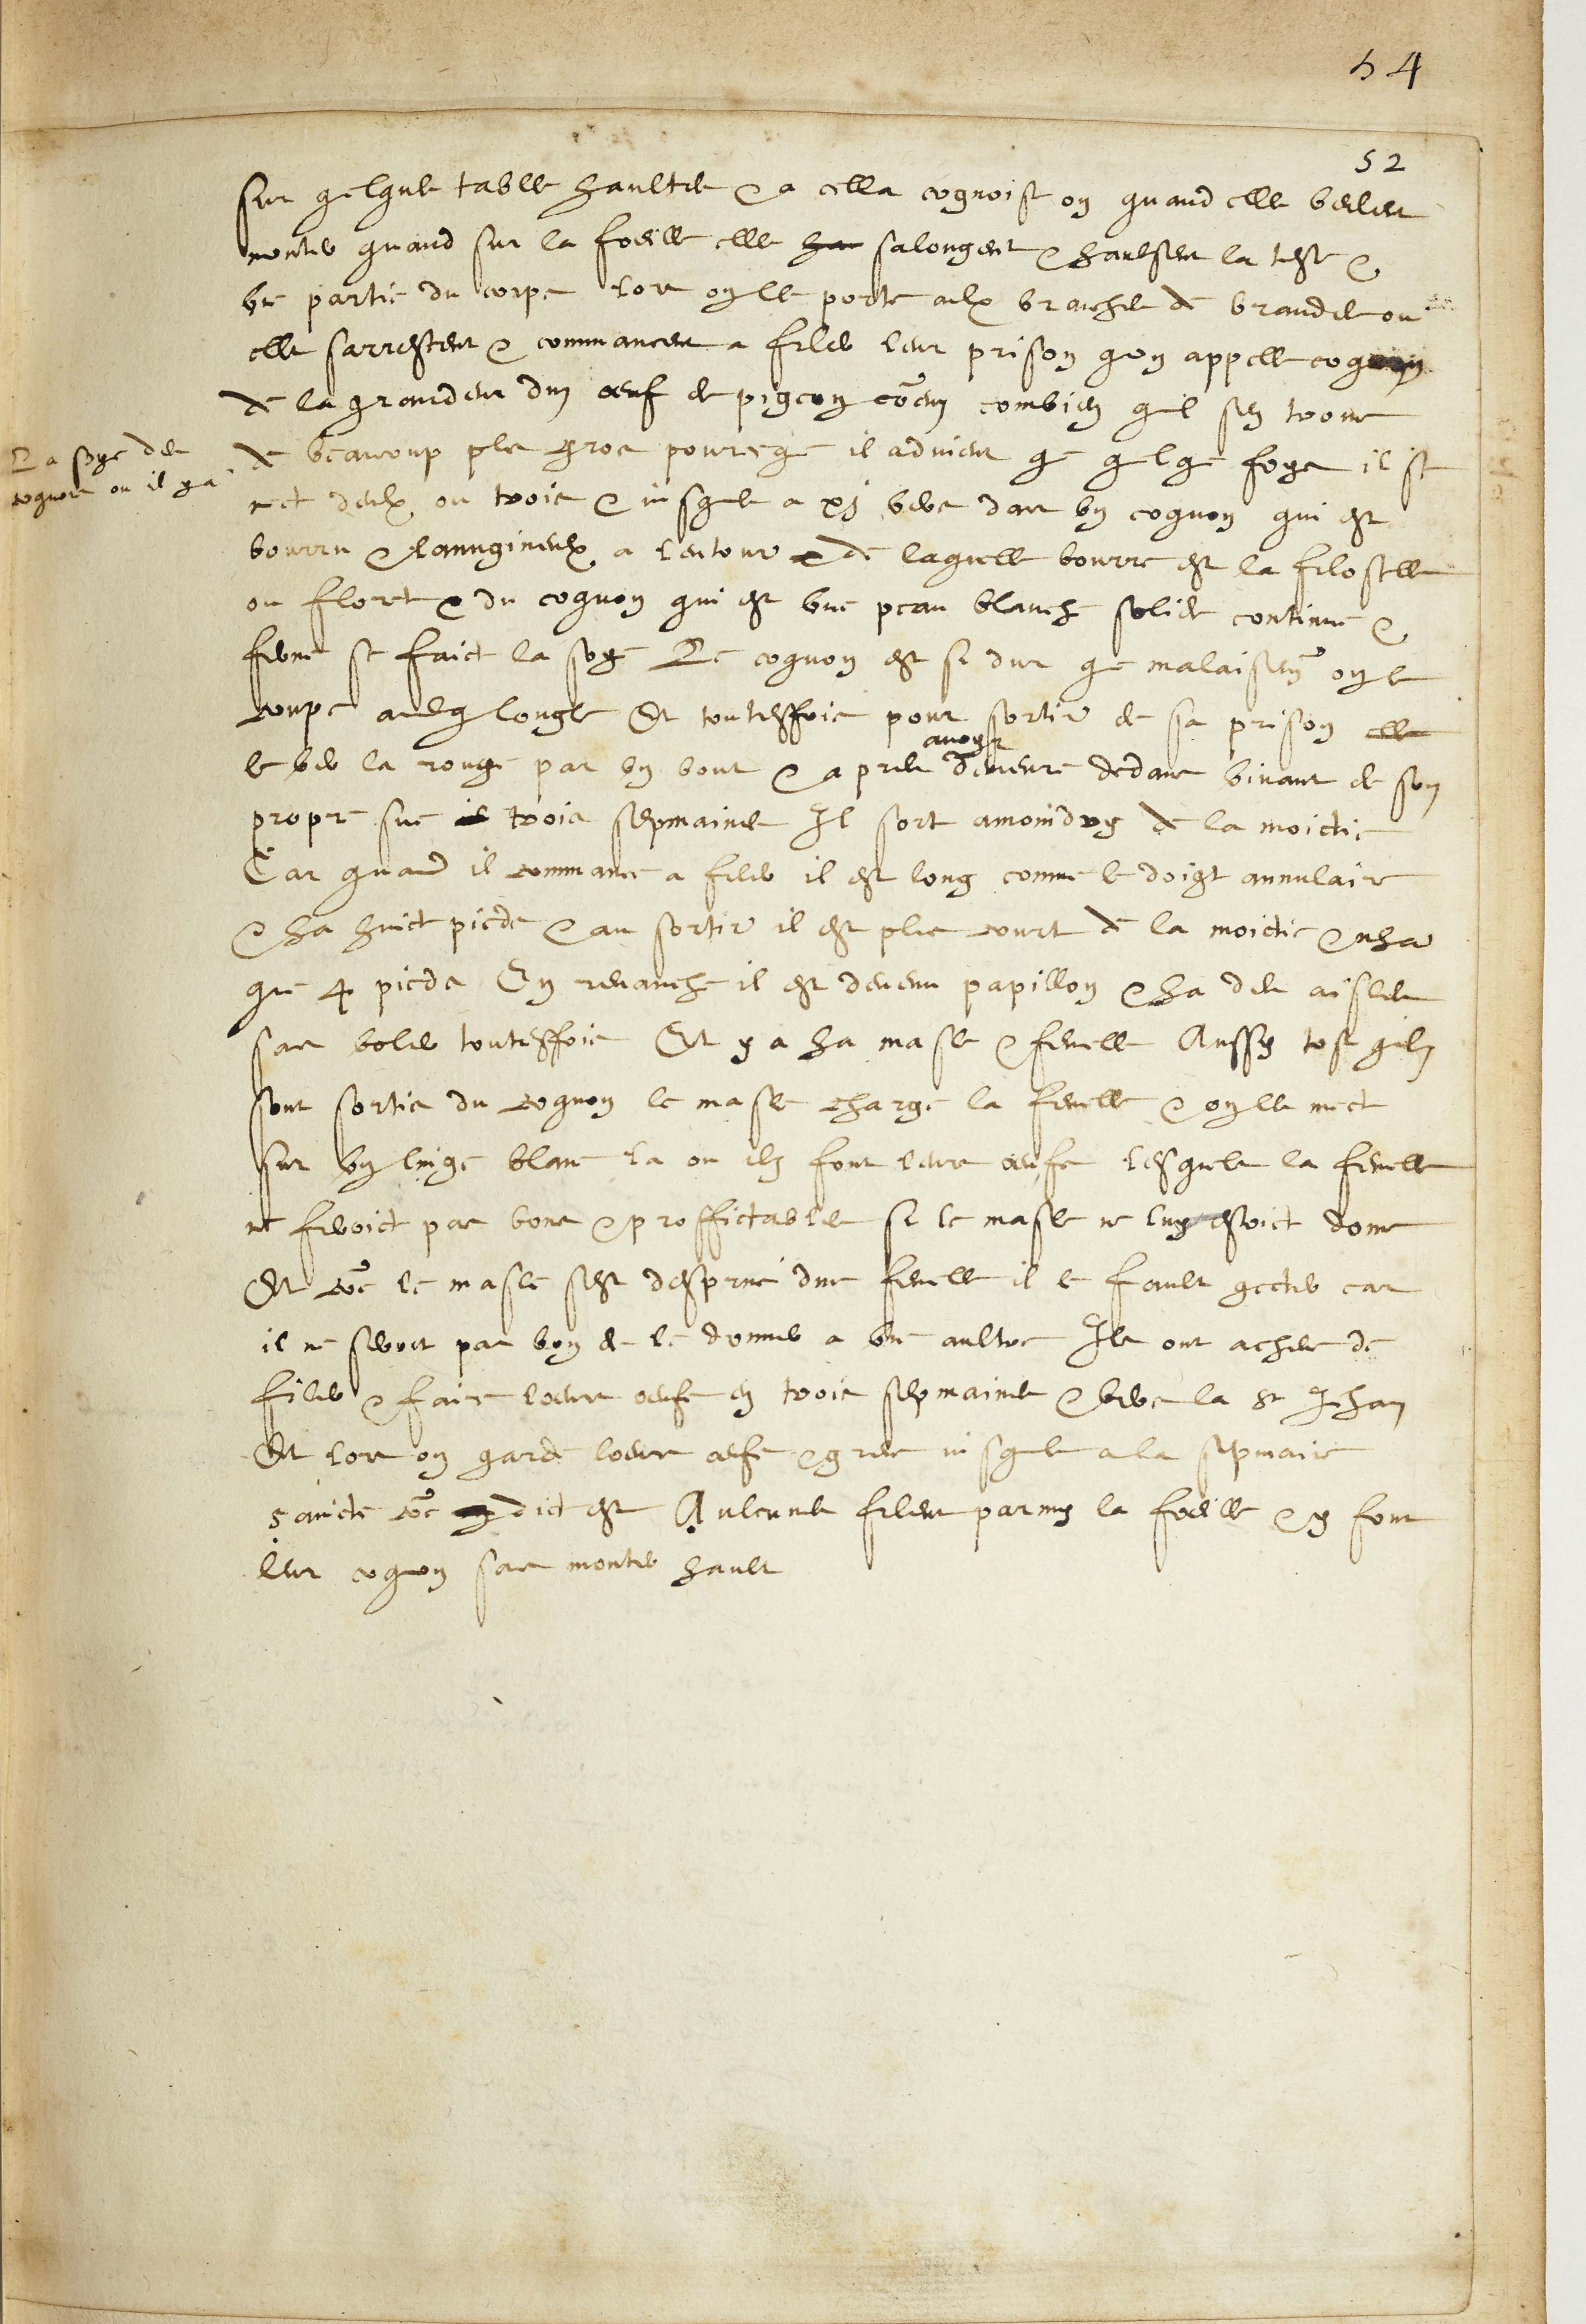 54
52
sur quelque table haulte & a cella cognoist on quand elles veulent
monter quand sur la foeille elles ha salongent & haulsent la teste &
une partie du corps Lors on les porte aulx branches de brandes ou
elles sarrestent & commancent a filer leur prison quon appelle cognon
de la grandeur dun oeuf de pigeon combien quil sen trouve
de beaucoup plus gros pourceque il advient que quelque foys il se
mect deulx ou trois & jusques a xj vers dans un cognon qui est
bourru & lanugineulx a lentour & de laquelle bourre est la filoselle
ou floret & du cognon qui est une peau blanche solide continue &
ferme se faict la soye Le cognon est si dur que malaisem on le
coupe avecq longle Et touteffois pour sortir de sa prison elle
le ver la ronge par un bout & apres avoyr demeure dedans vivant de son
propre suc il trois sepmaines Il sort amoindry de la moictie
Car quand il commance a filer il est long comme le doigt annulaire
& ha huict pieds & au sortir il est plus court de la moictie & nha
que 4 pieds En revanche il est devenu papillon & ha des aisles
sans voler touteffois Et y a ha masle & femelle Aussy tost quilz
sont sortis du cognon le masle charge la femelle & on les mect
sur un linge blanc la ou ilz font leurs oeufs lesquels la femelle
ne feroict pas bons & proffictables si le masle ne luy estoict donne
Et co{m}e le masle sest despeure dune femelle il le fault gecter car
il ne seroit pas bon de le donner a une aultre Ils ont acheve de
filer & faire leurs oeufs en trois sepmaines & vers la St Jehan
Et lors on garde leurs oeufs & grene jusques a la sepmaine
saincte co{m}e dict est Aulcunes filent parmy la foeille & y font
leur cognon sans monter hault
La soye des
cognons ou il y a